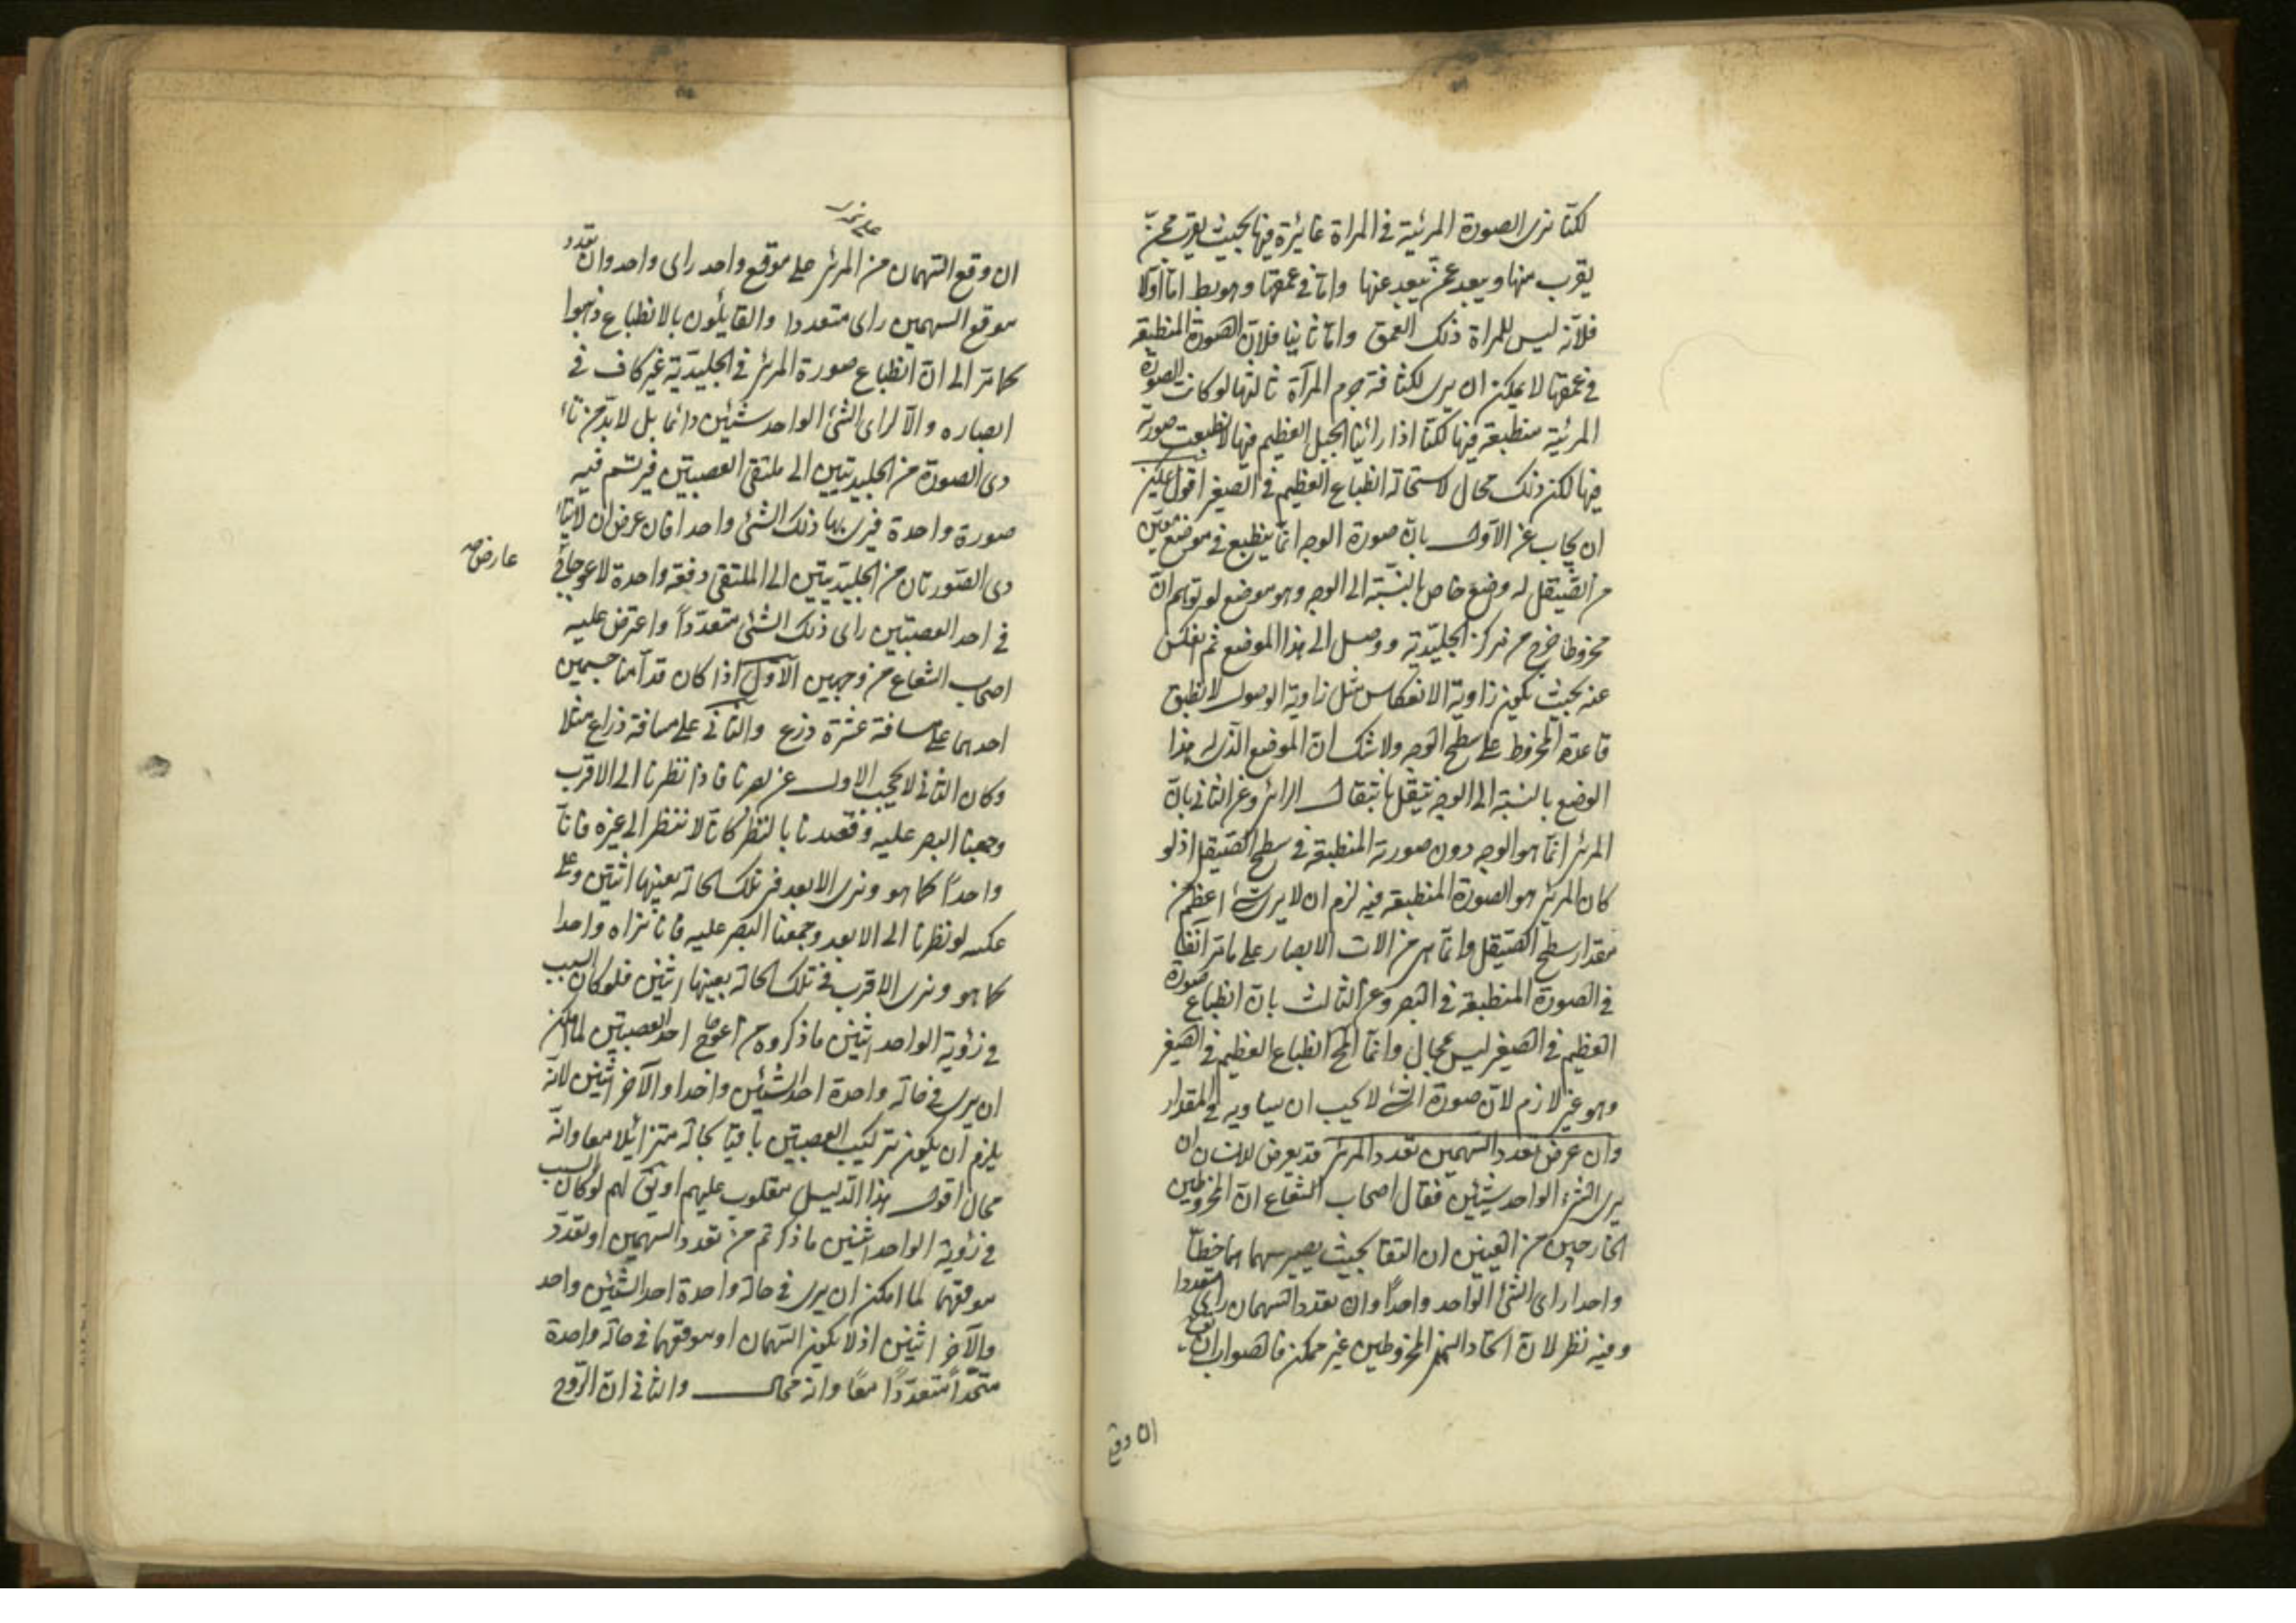 لكنا نرى الصورة المرئية فى المراة غائرة فيها بحيث يقرب ممن
يقرب منها ويبعد عمن يبعد عنها واما فى عمقها وهو بط اما اولا
فلانه ليس للمراة ذلك العمق واما ثانيا فلان الصورة المنطبعة
فى عمقها لا يمكن ان يرى لكثافة جرم المرآة ثالثها لو كانت الصورة
المرئية منطبعة فيها لكنا اذا رائينا الجبل العظيم فيها لانطبعت صورته
فيها لكن ذلك محال لاستحالة انطباع العظيم فى الصغير اقول يمكن
ان يجاب عن الاول بان صورة الوجه انما ينطبع فى موضع معين
من الصيقل له وضع خاص بالنسبة الى الوجه وهو موضع لو توهم ان
مخروطا خرج من مركز الجليدية ووصل الى هذا الموضع ثم انعكس
عنه بحيث يكون زاوية الانعكاس مثل زاوية الوصول لانطبق
قاعدة المخروط على سطح الوجه ولا شك ان الموضع الذى له هذا
الوضع بالنسبة الى الوجه ينتقل بانتقال الرائى وعن الثانى بان
المرئى انما هو الوجه دون صورته المنطبعة فى سطح الصيقل اذ لو
كان المرئى هو الصورة المنطبعة فيه لزم ان لا يرى شئ اعظم من
مقدار سطح الصيقل وانما هى من الات الابصار على ما مر آنفا
فى الصورة المنطبعة فى البصر وعن الثالث بان انطباع صورة
العظيم فى الصغير ليس بمحال وانما المح انطباع العظيم فى الصغير
وهو غير لازم لان صورة الشئ لا يجب ان يساويه فى المقدار
وان عرض تعدد السهمين تعدد المرئى قد يعرض للانسان ان
يرى الشئ الواحد شيئين فقال اصحاب الشعاع ان المخروطين
الخارجين من العينين ان التقيا بحيث يصير سهماهما خطا
واحدا راى الشئ الواحد واحدا وان تعدد السهمان راى متعددا
وفيه نظر لان اتحاد المخروطين غير ممكن فالصواب ان يقع
ان وقع
ان وقع السهمان من المرئى على موقع واحد راى واحد وان تعدد
موقع السهمين راى متعددا والقايلون بالانطباع ذهبوا
كما مر الى ان انطباع صورة المرئى فى الجليدية غير كاف فى
ابصاره والا لراى الشئ الواحد شئين دائما بل لابد من تا
دى الصورة من الجليديتين الى ملتقى العصبتين فيرتسم فيه
صورة واحدة فيرى بها ذلك الشئ واحدا فان عرض ان لا يتا
دى الصورتان من الجليديتين الى الملتقى دفعة واحدة لاعوجاج
عارض
فى احد العصبتين راى ذلك الشئ متعددا واعترض عليه
اصحاب الشعاع من وجهين الاول اذا كان قدامنا جسمين
احدهما على مسافة عشرة اذرع والثانى على مسافة ذراع مثلا
وكان الثانى لا يحجب الاول عن بصرنا فاذا نظرنا الى الاقرب
وجمعنا البصر عليه وقصدنا بالنظر كانا لا ننظر الى غيره فانا
واحدا كما هو ونرى الابعد فى تلك الحالة بعينها اثنين وعلى
عكسه لو نظرنا الى الابعد وجمعنا البصر عليه فانا نراه واحدا
كما هو ونرى الاقرب فى تلك الحالة بعينها اثنين فلو كان السبب
فى رؤية الواحد اثنين ما ذكروه من اعوجاج احد العصبتين لما امكن
ان يرى فى حالة واحدة احد الشئين واحدا والآخر اثنين لانه
يلزم ان يكون تركيب العصبتين باقيا بحاله متزائلا معا وانه
محال اقول هذا الدليل مقلوب عليهم اذ يق لهم لو كان السبب
فى رؤية الواحد اثنين ما ذكرتم من تعدد السهمين او تعدد
موقعهما لما امكن ان يرى فى حالة واحدة احد الشئين واحد
والآخر اثنين اذ لا يكون السهمان او موقعهما فى حالة واحدة
متحدا متعددا معا وانه محال والثانى ان الروح